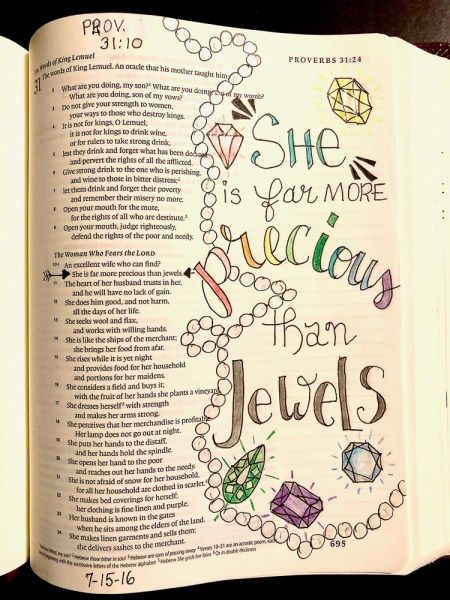 PROV.
31:10
The Words of King Lemuel
PROVERBS 31:24
31 The words of King Lemuel. An oracle that his mother taught him:
2 What are you doing, my son? What are you doing, son of my womb?
What are you doing, son of my vows?
3 Do not give your strength to women,
your ways to those who destroy kings.
4 It is not for kings, O Lemuel,
it is not for kings to drink wine,
or for rulers to take strong drink,
5 lest they drink and forget what has been decreed
and pervert the rights of all the afflicted.
6 Give strong drink to the one who is perishing,
and wine to those in bitter distress;
7 let them drink and forget their poverty
and remember their misery no more.
8 Open your mouth for the mute,
for the rights of all who are destitute.
9 Open your mouth, judge righteously,
defend the rights of the poor and needy.
The Woman Who Fears the LORD
10 An excellent wife who can find?
She is far more precious than jewels.
11 The heart of her husband trusts in her,
and he will have no lack of gain.
12 She does him good, and not harm,
all the days of her life.
13 She seeks wool and flax,
and works with willing hands.
14 She is like the ships of the merchant;
she brings her food from afar.
15 She rises while it is yet night
and provides food for her household
and portions for her maidens.
16 She considers a field and buys it;
with the fruit of her hands she plants a vineyard.
17 She dresses herself with strength
and makes her arms strong.
18 She perceives that her merchandise is profitable.
Her lamp does not go out at night.
19 She puts her hands to the distaff,
and her hands hold the spindle.
20 She opens her hand to the poor
and reaches out her hands to the needy.
21 She is not afraid of snow for her household,
for all her household are clothed in scarlet.
22 She makes bed coverings for herself;
her clothing is fine linen and purple.
23 Her husband is known in the gates
when he sits among the elders of the land.
24 She makes linen garments and sells them;
she delivers sashes to the merchant.
SHe
is far MORE
precious
than
JeweLS
695
7-15-16